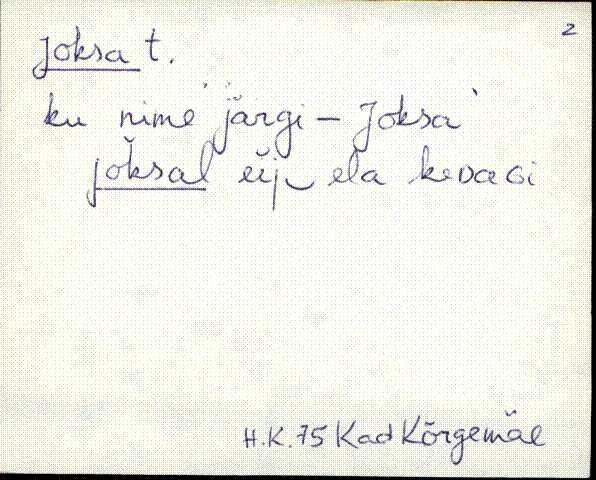 2
Joksa t.
ku nime järgi – Joksa
joksal eij ela keDaGi
H.K. 75 Kad Kõrgemäe